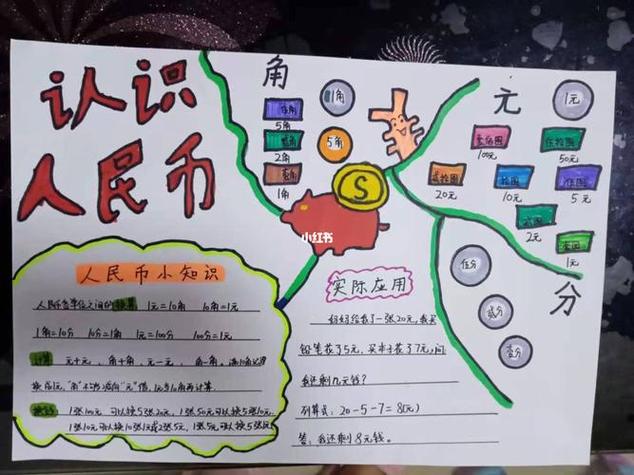 认识
人民币
角
5角
2角
1角
1角
5角
S
小红书
元
壹佰圆
100元
伍拾圆
50元
贰拾圆
20元
拾圆
10元
伍圆
5元
贰圆
2元
壹圆
1元
1元
分
伍分
贰分
壹分
人民币小知识
人民币各单位之间的换算 1元=10角 10角=1元
1角=10分 10分=1角 1元=100分 100分=1元
计算 元+元、角+角、元-元、角-角。满10角记得
换成1元,"角"不够减向"元"借,1元当10角再计算.
1张10元 可以换5张2元,1张50元可以换5张10元,
1张10元可以换10张1元或2张5元,1张5元可以换5张1元
实际应用
妈妈给我了一张20元,我买
铅笔花了5元,买本子花了7元,问
我还剩几元钱?
列算式: 20-5-7=8(元)
答:我还剩8元钱。